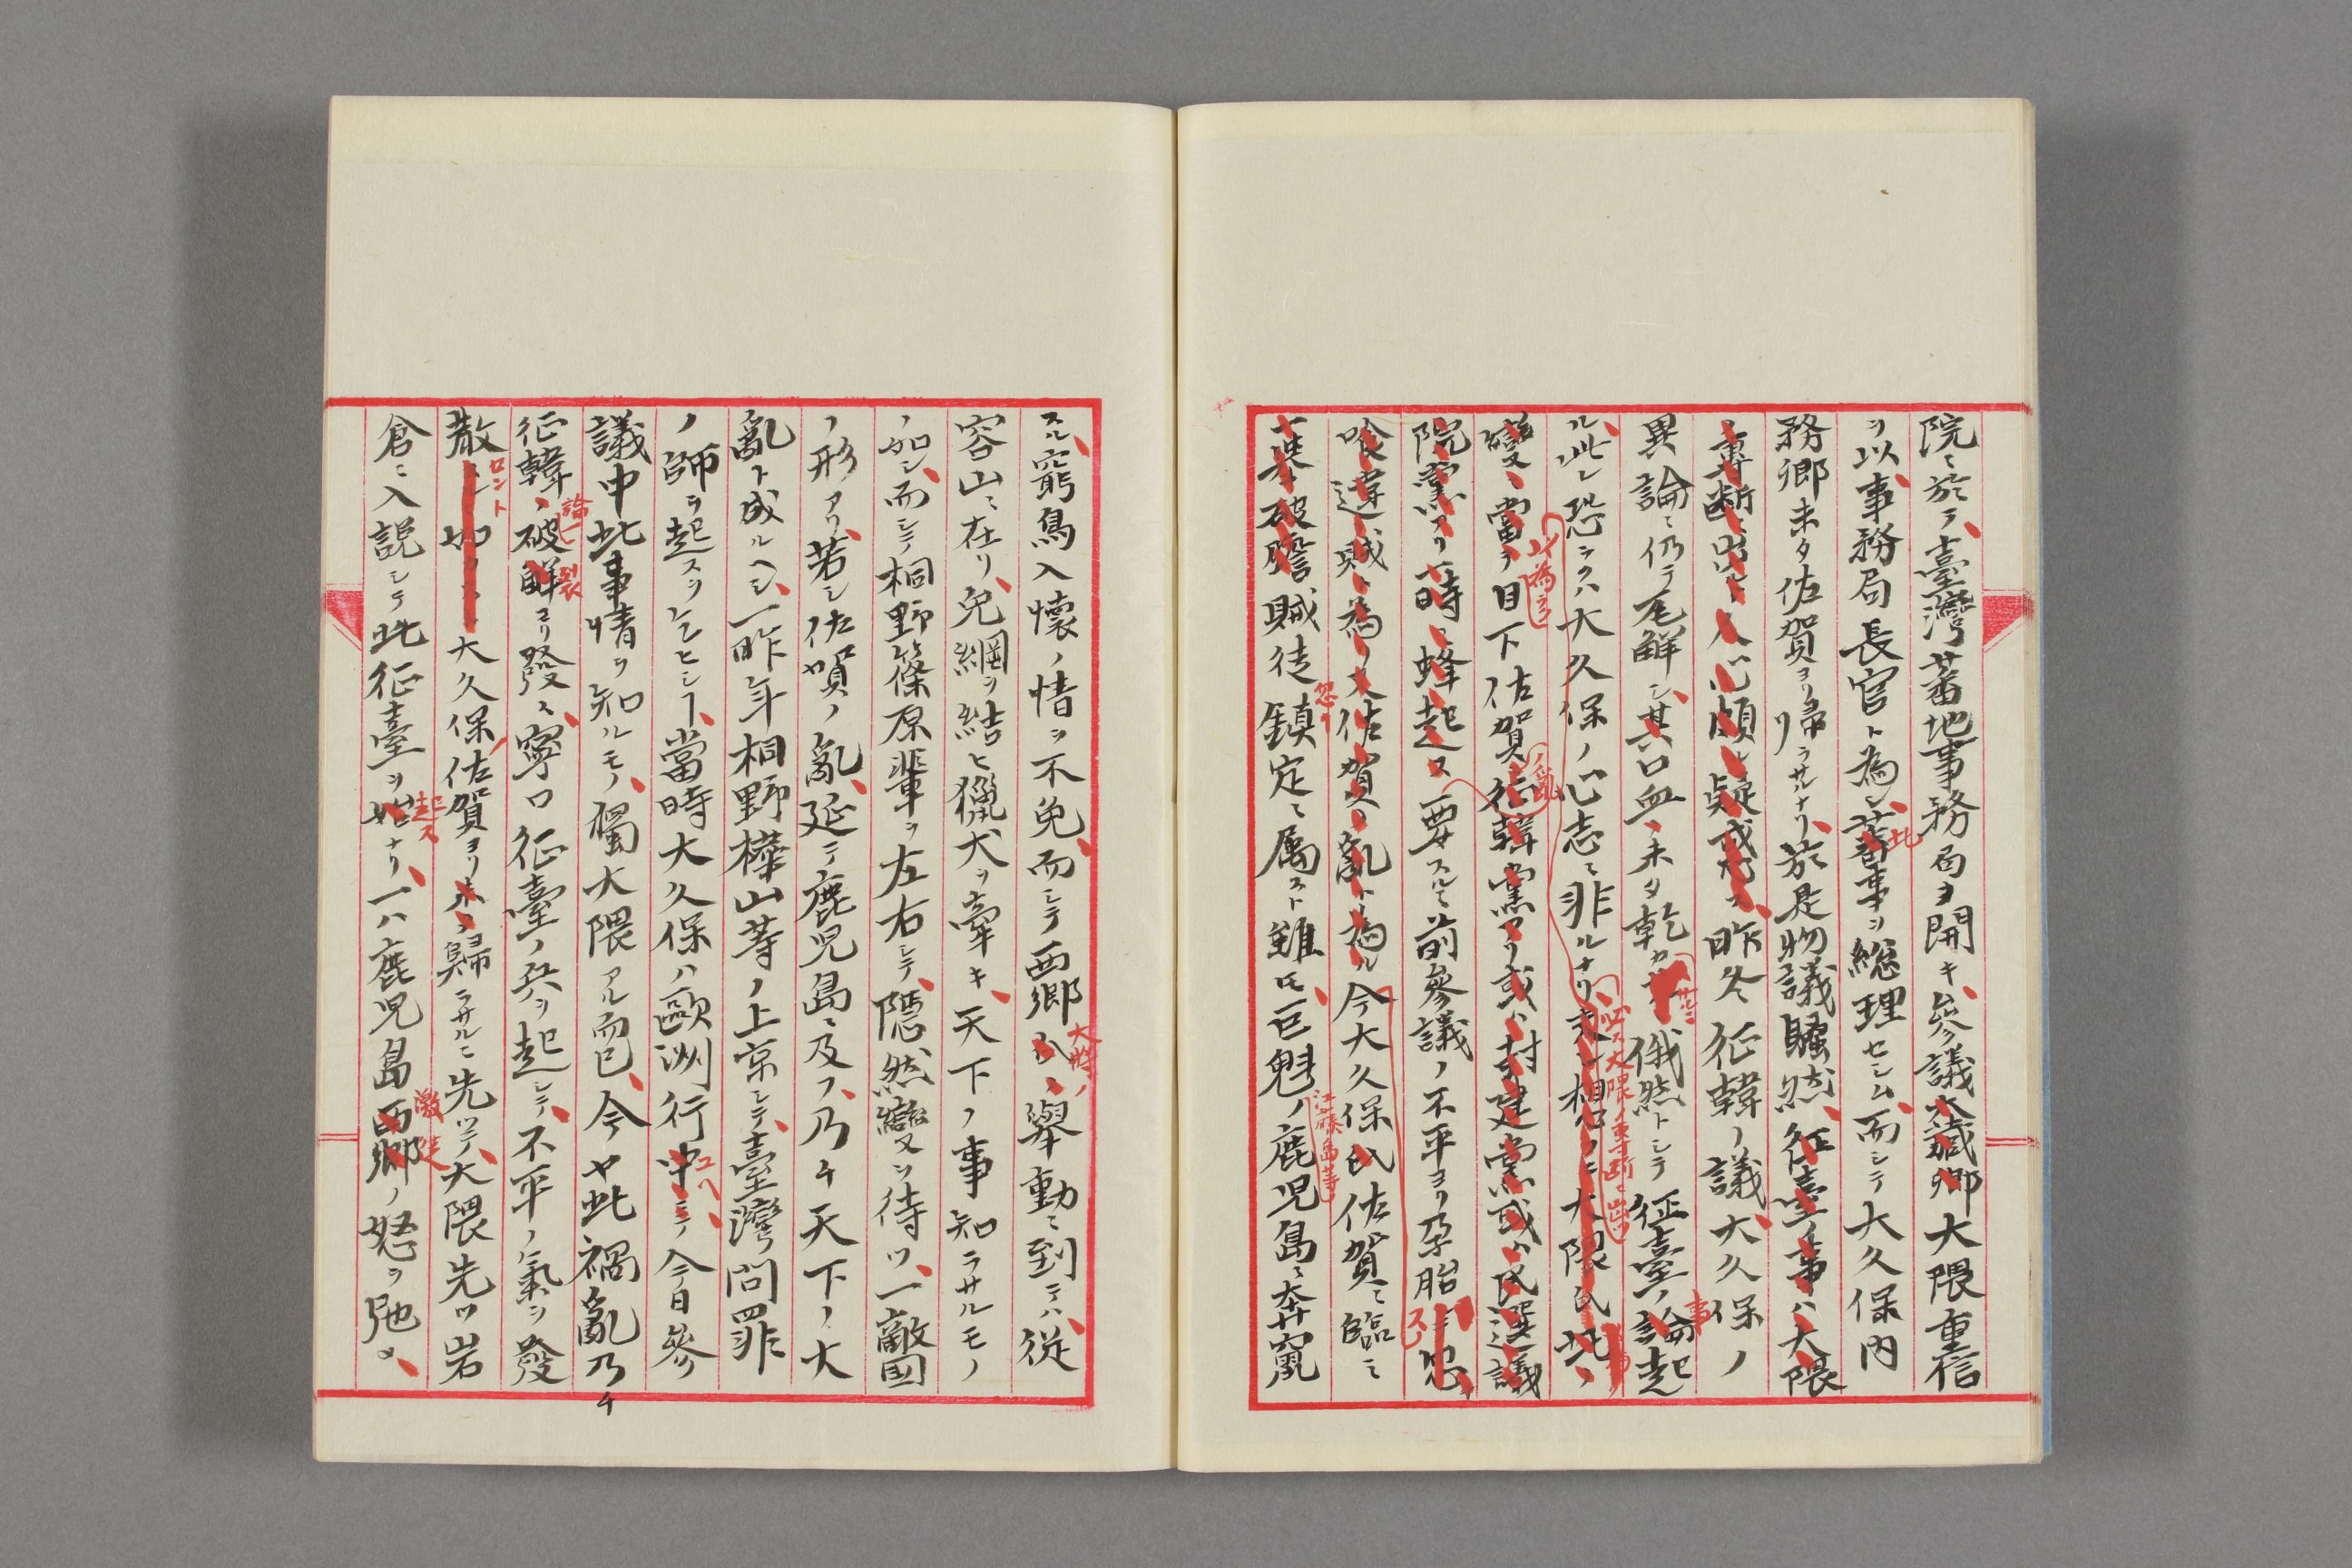 院ニ於テ、臺灣蕃地事務局ヲ開キ、參議大藏卿大隈重信
ヲ以、事務局長官ト為シ、蕃事ヲ總理セシム、而シテ大久保内
此
務卿未タ佐賀ヨリ帰ラサルナリ、於是物議騒然、征臺ノ事ハ大隈
ノ專断ニ出ルト人心頗ル疑惑ス、昨冬征韓ノ議、大久保ノ
異論ニ仍テ瓦解シ、其口血未タ乾カ
俄然トシテ征臺ノ論起
サルニ
事
ル、此レ恐ラクハ大久保ノ心志ニ非ルナリ
大隈氏此ノ
必ス大隈ノ專断ニ出ツ
以為ラク
變ニ當ラ目下佐賀征韓黨アリ或ハ封建黨或ハ民選議
ノ亂
院黨アリ一時ニ蜂起ス要スルニ前參議ノ不平ヨリ孕胎
ス
喰違賊ト為リ又佐賀ノ亂ト為ル今大久保氏佐賀ニ臨ミ
忽チ
破膽賊徒鎮定ニ属スト雖モ、巨魁ノ鹿児島ニ奔竄
江藤島等
スル、窮鳥入懐ノ情ヲ不免、而シテ西郷
ノ舉動ニ到テハ、從
大将ノ
容山ニ在リ、免網ヲ結ヒ獵犬ヲ牽キ、天下ノ事知ラサルモノ
ノ如シ、而シテ桐野篠原輩ヲ左右シテ、隱然變ヲ待ツ、一敵國
ノ形アリ、若シ佐賀ノ亂、延テ鹿児島ニ及フ、乃チ天下ノ大
亂ト成ルヘシ、一昨年桐野樺山等ノ上京シテ、臺灣問罪
ノ師ヲ起スヲ
當時大久保ハ歐洲行中ニテ今日參
ユヘ、
議中此事情ヲ知ルモノ、獨大隈アル而已、今ヤ此禍亂乃チ
征韓ノ破解ヨリ發ス、寧ロ征臺ノ兵ヲ起シテ、不平ノ氣ヲ發
論
裂
散
大久保佐賀ヨリ未タ歸ラサルニ先ツテ、大隈先ツ岩
セント
倉ニ入説シテ此征臺ヲ始ナリ、一ハ鹿児島西郷ノ怒ヲ弛メ、
起ス
激徒